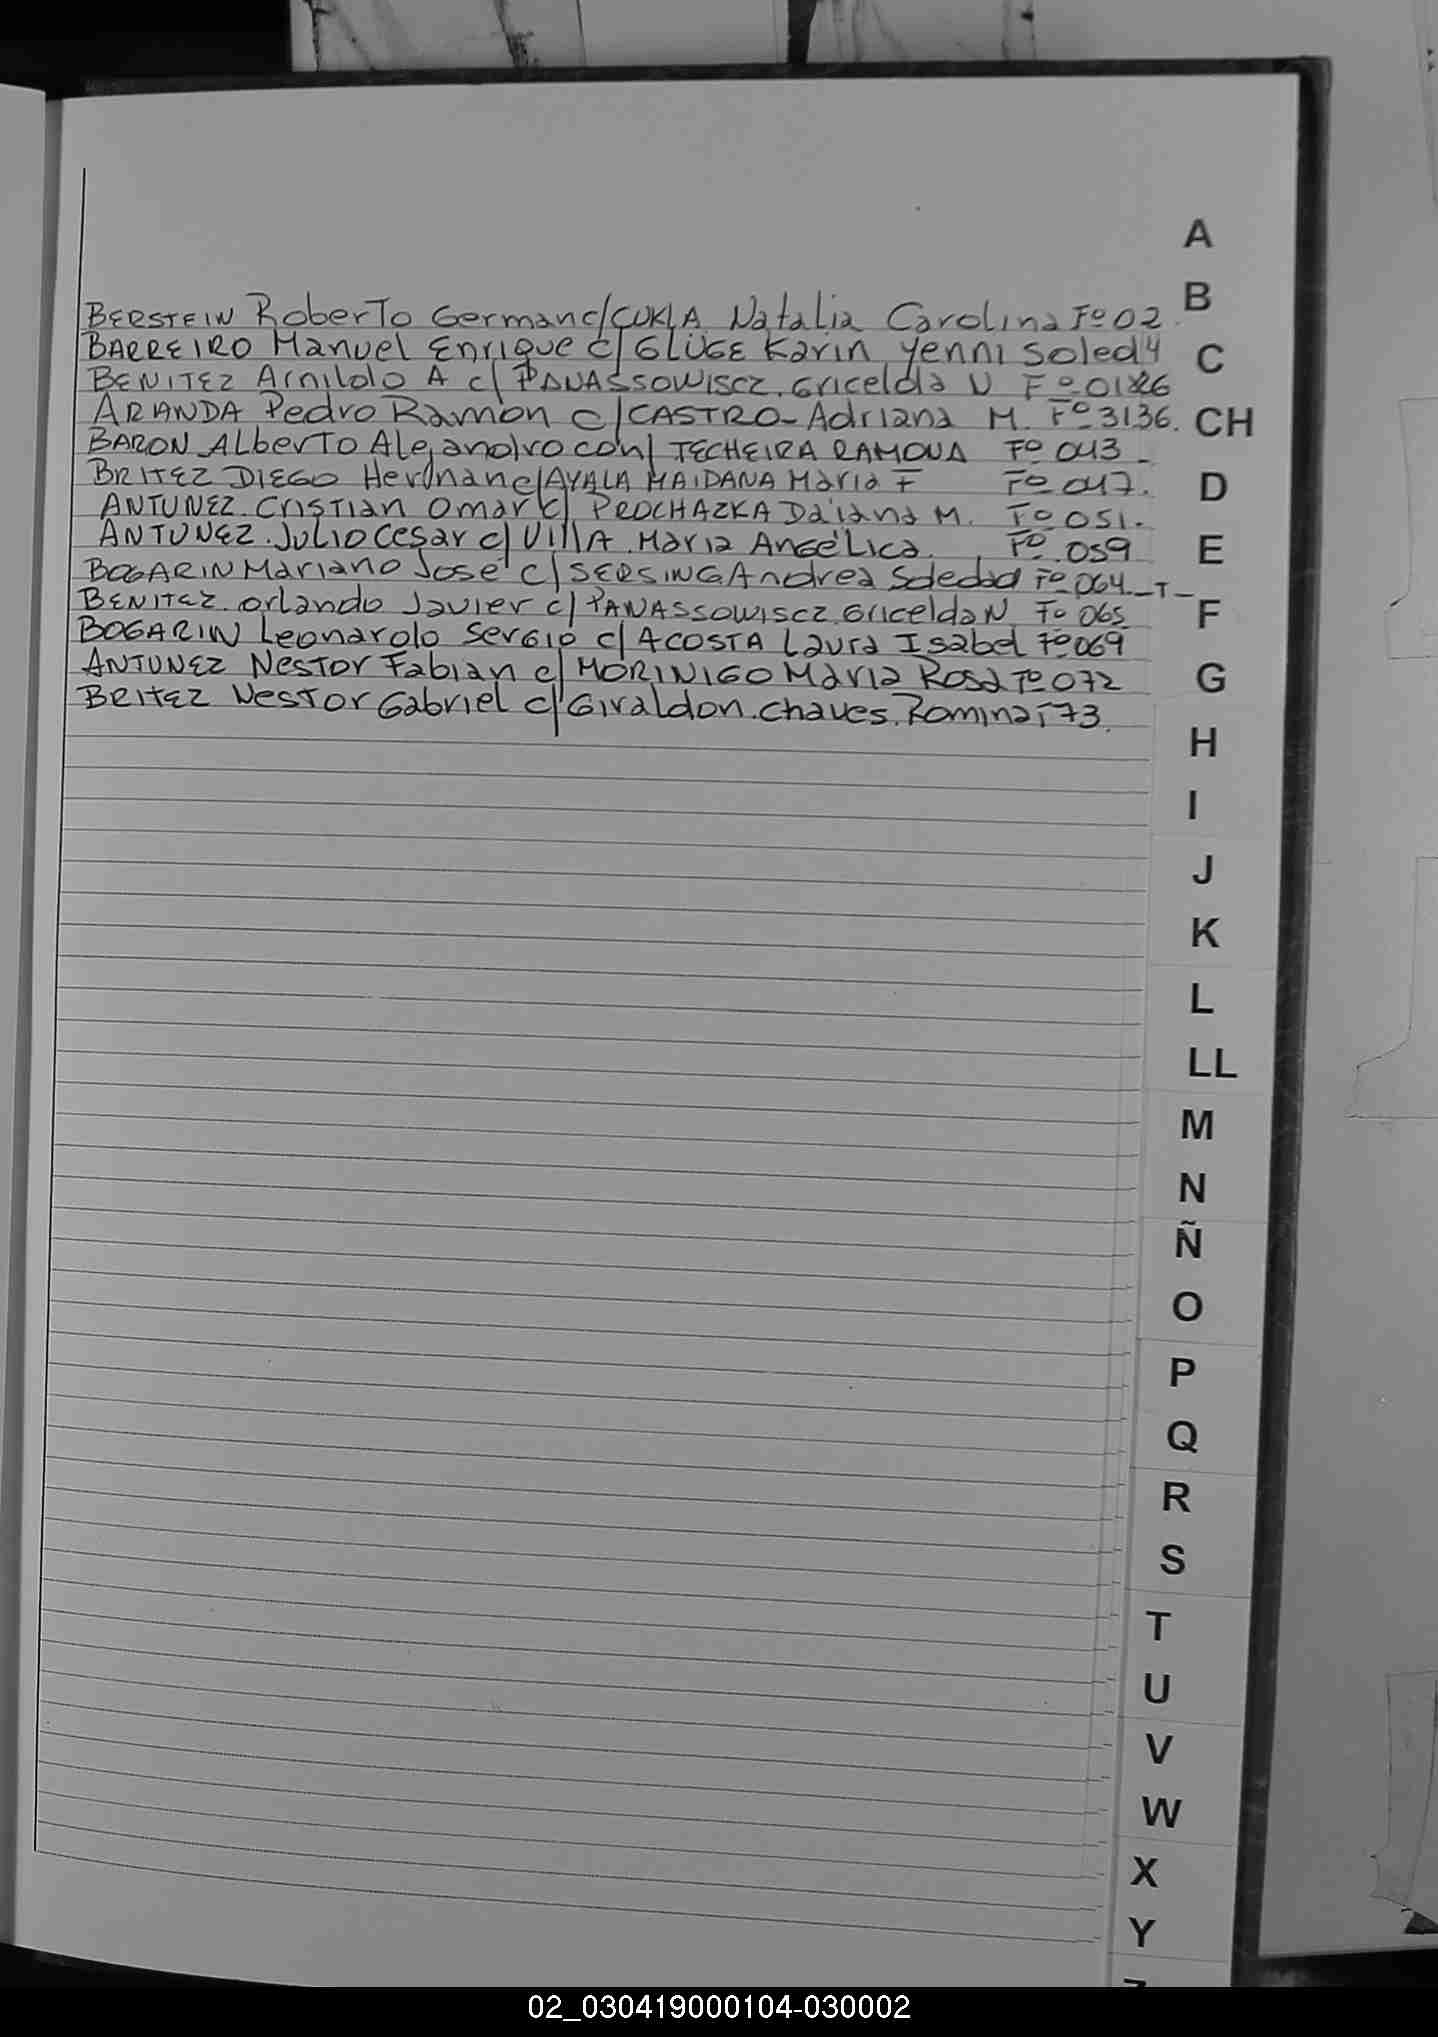 BERSTEIN Roberto German c/ CUKLA Natalia Carolina Fº 02.
BARREIRO Manuel Enrique c/ GLÜGE Karin Yenni Soled 4
BENITEZ Arnildo A c/ PANASSOWISCZ. Gricelda N Fº
ARANDA Pedro Ramon c/ CASTRO - Adriana M. Fº 3136.
BARON ALberto Alejandro con/ TECHEIRA RAMONA Fº 043 -
BRITEZ DIEGO Hernan c/ AYALA MAIDANA Maria F Fº 047.
ANTUNEZ. Cristian Omar c/ PROCHAZKA Daiana M. Fº 051.
ANTUNEZ. Julio Cesar c/ VIllA. Maria Angélica. Fº 059
BOGARIN Mariano José c/ SERSING Andrea Soledad Fº 064. - T -
BENITEZ. Orlando Javier c/ PANASSOWISCZ. Gricelda N Fº 065
BOGARIN Leonardo Sergio c/ ACOSTA Laura Isabel Fº 069
ANTUNEZ Nestor Fabian c/ MORINIGO Maria Rosa Fº 072
BRITEZ Nestor Gabriel c/ Giraldon. Chaves. Romina F 73.
A
B
C
CH
D
E
F
G
H
I
J
K
L
LL
M
N
Ñ
O
P
Q
R
S
T
U
V
W
X
Y
02_030419000104-030002